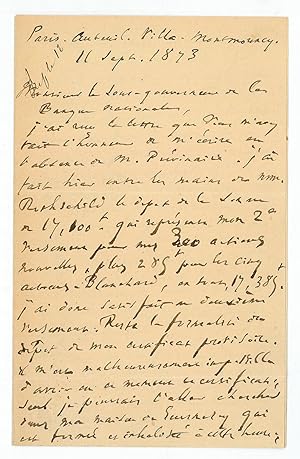 Paris. Auteuil. Villa. Montmorency.
11 Sept. 1873
Monsieur le Sous-gouverneur de la
Banque nationale,
j'ai reçu la lettre que vous m'avez
fait l'honneur de m'écrire en
l'absence de M. j'ai
fait hier entre les mains de MM.
Rothschild le dépôt de la Somme
de 17,100 f qui représente mon 2e
versement pour mes 300 actions
nouvelles, plus 285 f pour les cinq
actions Blanchard, en tout 17,385 f.
j'ai donc satisfait au deuxième
versement. Reste la formalité du
dépôt de mon certificat provisoire.
Il m'est malheureusement impossible
d'avoir en ce moment ce certificat,
seul je pourrais l'aller chercher
dans ma maison de Guernesey qui
est fermée et à cette heure;